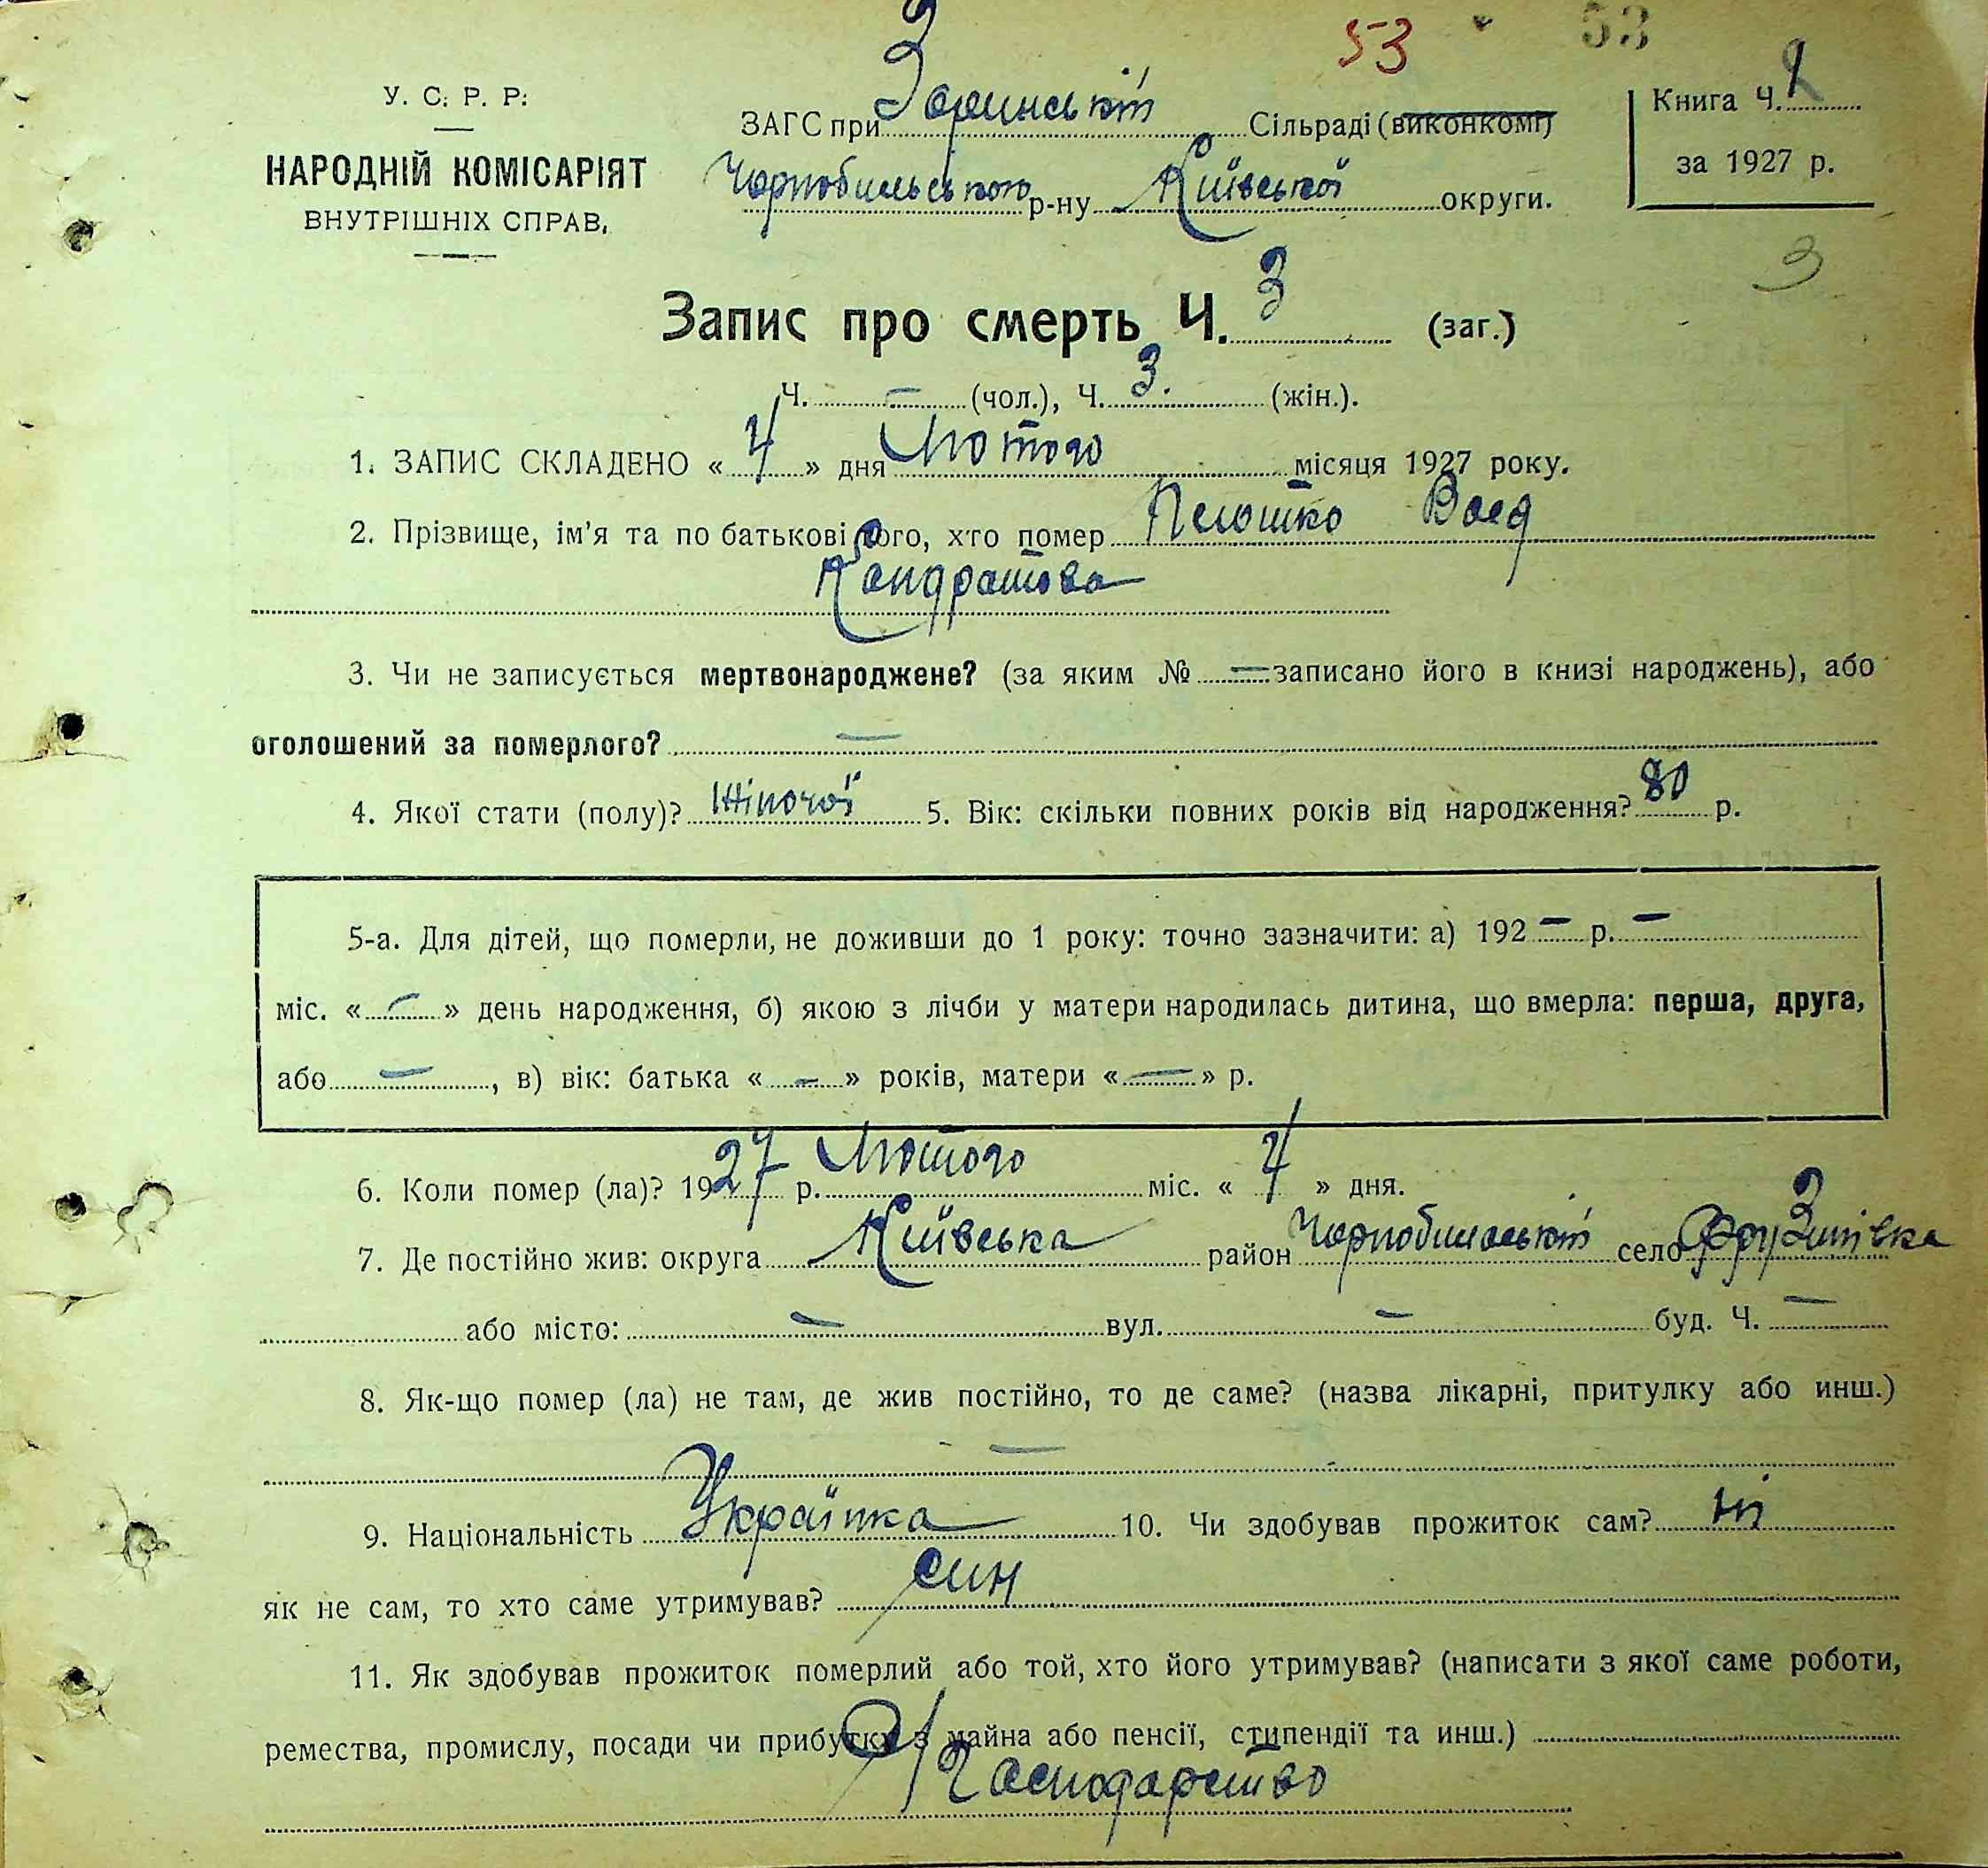 53 53
У. С. Р. Р.
НАРОДНІЙ КОМІСАРІЯТ
ВНУТРІШНІХ СПРАВ.
ЗАГС при Зоринській Сільраді (виконкомі)
Чорнобильського р-ну Київської округи.
Книга Ч.
за 1927 р.
3
Запис про смерть Ч. 3 (заг.)
Ч. — (чол.), Ч. 3. (жін.).
1. ЗАПИС СКЛАДЕНО « 4 » дня Лютого місяця 1927 року.
2. Прізвище, ім'я та по батькові того, хто помер
Кандратова
3. Чи не записується мертвонароджене? (за яким № — записано його в книзі народжень), або
оголошений за померлого? —
4. Якої стати (полу)? Жіночої 5. Вік: скільки повних років від народження? 80 р.
5-а. Для дітей, що померли, не доживши до 1 року: точно зазначити: а) 192 — р. —
міс. « — » день народження, б) якою з лічби у матери народилась дитина, що вмерла: перша, друга,
або — , в) вік: батька « — » років, матери « — » р.
6. Коли помер (ла)? 1927 р. Лютого міс. « 4 » дня.
7. Де постійно жив: округа Київська район Чорнобильській село
або місто: — вул. — буд. Ч. —
8. Як-що помер (ла) не там, де жив постійно, то де саме? (назва лікарні, притулку або инш.)
—
9. Національність Українка 10. Чи здобував прожиток сам? ні
як не сам, то хто саме утримував? син
11. Як здобував прожиток померлий або той, хто його утримував? (написати з якої саме роботи,
ремества, промислу, посади чи прибутку з майна або пенсії, стипендії та инш.)
Гасподарство